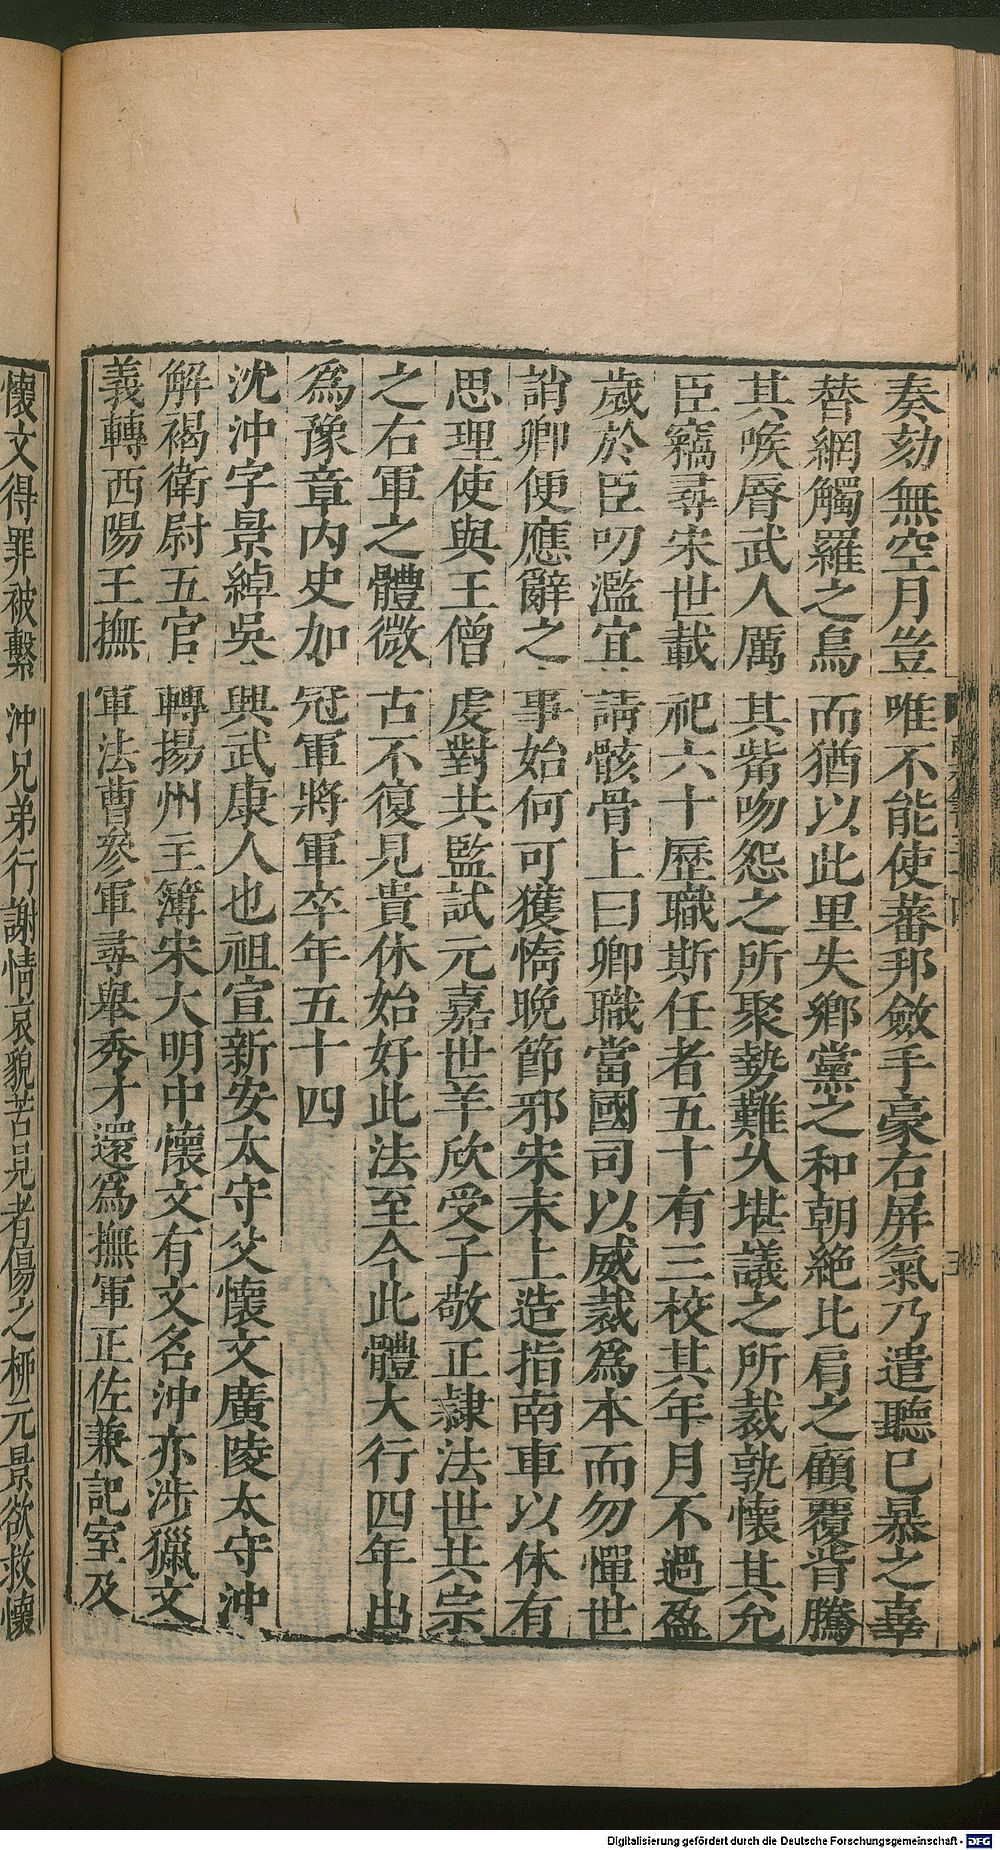 奏劾無空月豈唯不能使蕃邦斂手豪右屏氣乃遣聽已暴之辜
替網觸羅之鳥而猶以此里失鄉黨之和朝絶比肩之顧覆背騰
其喉脣武人厲其觜吻怨之所聚勢難久堪議之所裁孰懷其允
臣竊尋宋世載祀六十歷職斯任者五十有三校其年月不過盈
歲於臣叨濫宜請骸骨上曰卿職當國司以威裁爲本而勿憚世
誚卿便應辭之事始何可獲惰晚節邪宋末上造指南車以休有
思理使與王僧虔對共監試元嘉世羊欣受子敬正隸法世共宗
之右軍之體微古不復見貴休始好此法至今此體大行四年出
爲豫章内史加冠軍將軍卒年五十四
沈沖字景綽吳興武康人也祖宣新安太守父懷文廣陵太守沖
解褐衛尉五官轉揚州主簿宋大明中懷文有文名沖亦涉獵文
義轉西陽王撫軍法曹參軍尋舉秀才還爲撫軍正佐兼記室及
懷文得罪被繫沖兄弟行謝情哀貌苦見者傷之柳元景欲救懷
Digitalisierung gefördert durch die Deutsche Forschungsgemeinschaft - DFG